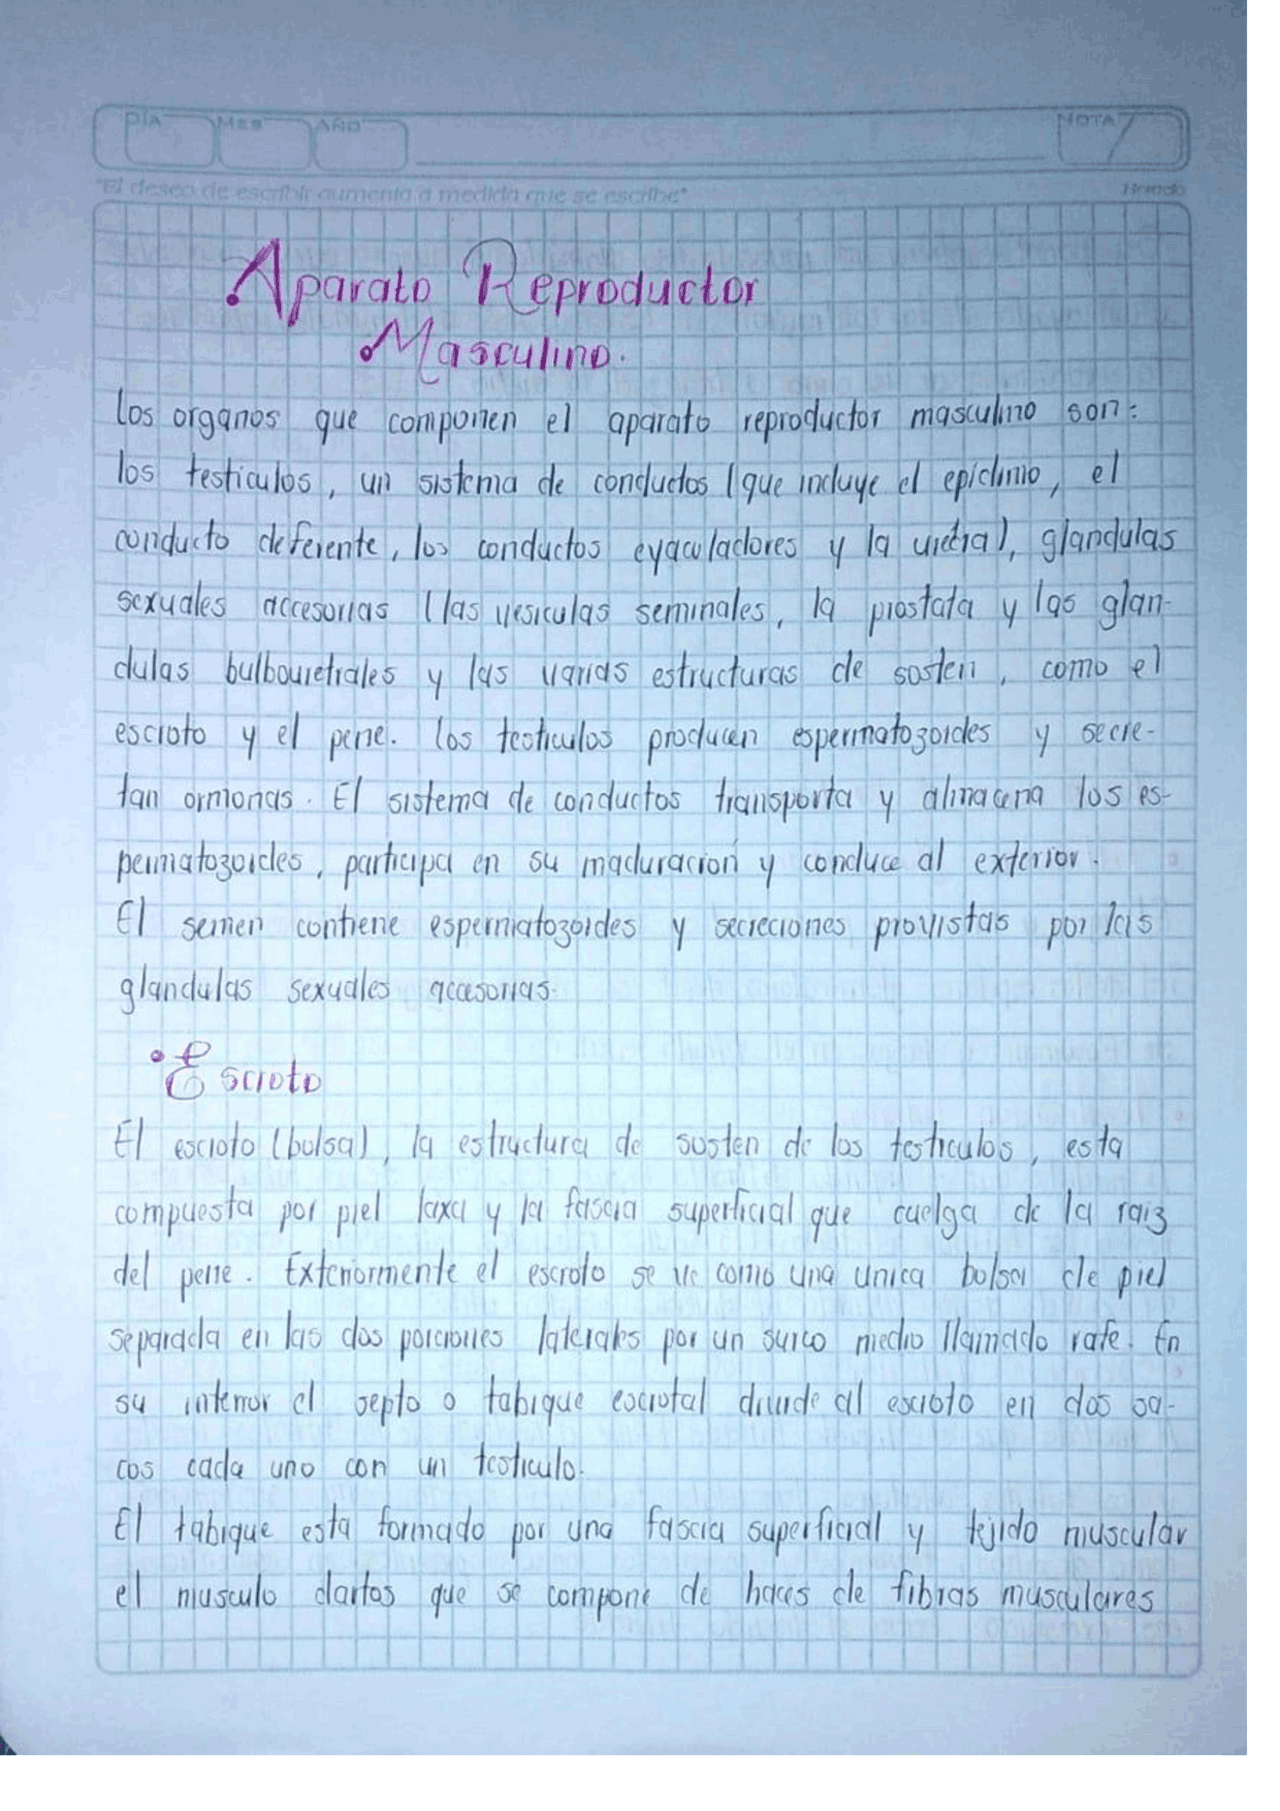 DÍA MES AÑO NOTA 7
"El deseo de escribir aumenta a medida que se escribe"
Aparato Reproductor
Masculino.
Los organos que componen el aparato reproductor masculino son:
los testiculos, un sistema de conductos (que incluye el epidimio, el
conducto deferente, los conductos eyaculadores y la uretra), glandulas
sexuales accesorias (las vesiculas seminales, la prostata y las glan-
dulas bulbouretrales y las varias estructuras de sosten, como el
escroto y el pene. Los testiculos producen espermatozoides y secre-
tan ormonas. El sistema de conductos transporta y almacena los es-
permatozoides, participa en su maduración y conduce al exterior.
El semen contiene espermatozoides y secreciones provistas por las
glandulas sexuales accesorias.
• Escroto
El escroto (bolsa), la estructura de sosten de los testiculos, esta
compuesta por piel laxa y la fascia superficial que cuelga de la raiz
del pene. Exteriormente el escroto se ve como una unica bolsa de piel
separada en las dos porciones laterales por un surco medio llamado rafe. En
su interior el septo o tabique escrotal divide al escroto en dos sa-
cos cada uno con un testiculo.
El tabique esta formado por una fascia superficial y tejido muscular
el musculo dartos que se compone de haces de fibras musculares